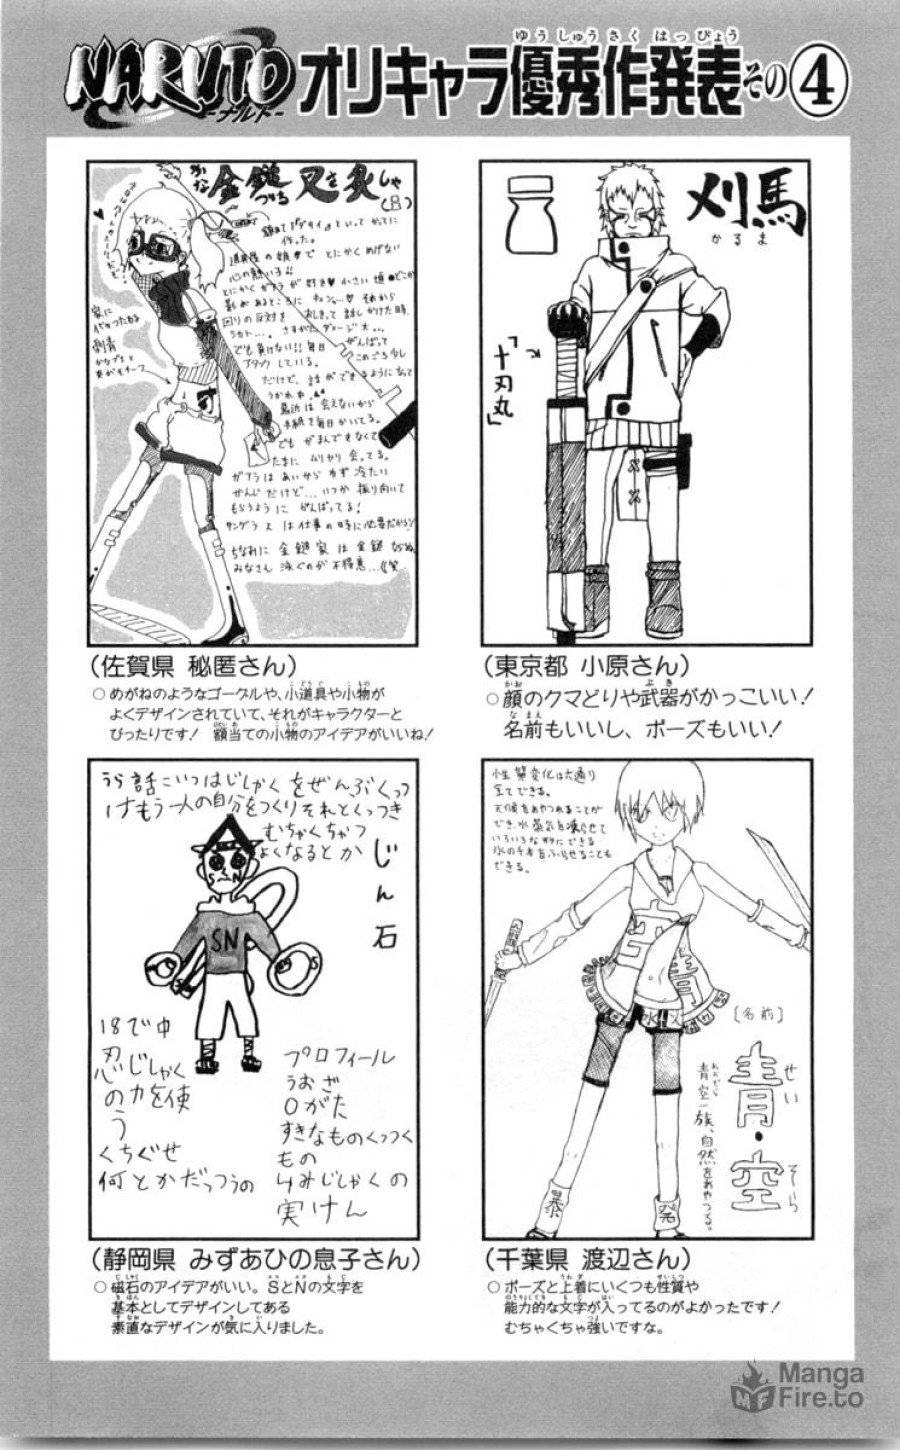 NARUTO
-ナルト-
オリキャラ優秀作発表その④
ゆうしゅうさくはっぴょう
金鎚 又炙
かな づち またしゃ
額あて「ダサイ」といって かってに
作った。
とにかく めげない
心の熱い子!!
でも負けない!! 毎日 がんばって
アタックしている。
手紙を毎日かいてる。
でも がまんできなくて
たまに ムリヤリ 会ってる。
ガアラは あいかわらず 冷たい
かんじだけど… いつか 振り向いて
もらうように がんばってる!
サングラスは仕事の時に必要だから!
ちなみに 金鎚家は 金鎚
みなさん 泳ぐのが不得意…((笑
刺青
(佐賀県 秘匿さん)
○めがねのようなゴーグルや、小道具や小物が
よくデザインされていて、それがキャラクターと
ぴったりです! 額当ての小物のアイデアがいいね!
刈馬
かるま
「十刃丸」
(東京都 小原さん)
○顔のクマどりや武器がかっこいい!
名前もいいし、ポーズもいい!
うら話こいつはじしゃくをぜんぶくっつ
けもう一人の自分をつくりそれとくっつき
むちゃくちゃつ
よくなるとか
じん石
S N
SN
18で中
忍じしゃく
の力を使
う
くちぐせ
何とかだっつうの
プロフィール
うおざ
O がた
すきなものくっつく
もの
じしゃくの
実けん
(静岡県 みずあひの息子さん)
○磁石のアイデアがいい。SとNの文字を
基本としてデザインしてある
素直なデザインが気に入りました。
性質変化は六通り
全てできる。
天候をあやつることが
でき、水蒸気を凍らせて
いろいろな形にできる
氷の千本をふらせることも
できる。
空
青
[名前]
青・空
せい そら
青空一族、自然をあやつる。
暴
発
(千葉県 渡辺さん)
○ポーズと上着にいくつも性質や
能力的な文字が入ってるのがよかったです!
むちゃくちゃ強いですな。
Manga
Fire.to
MF